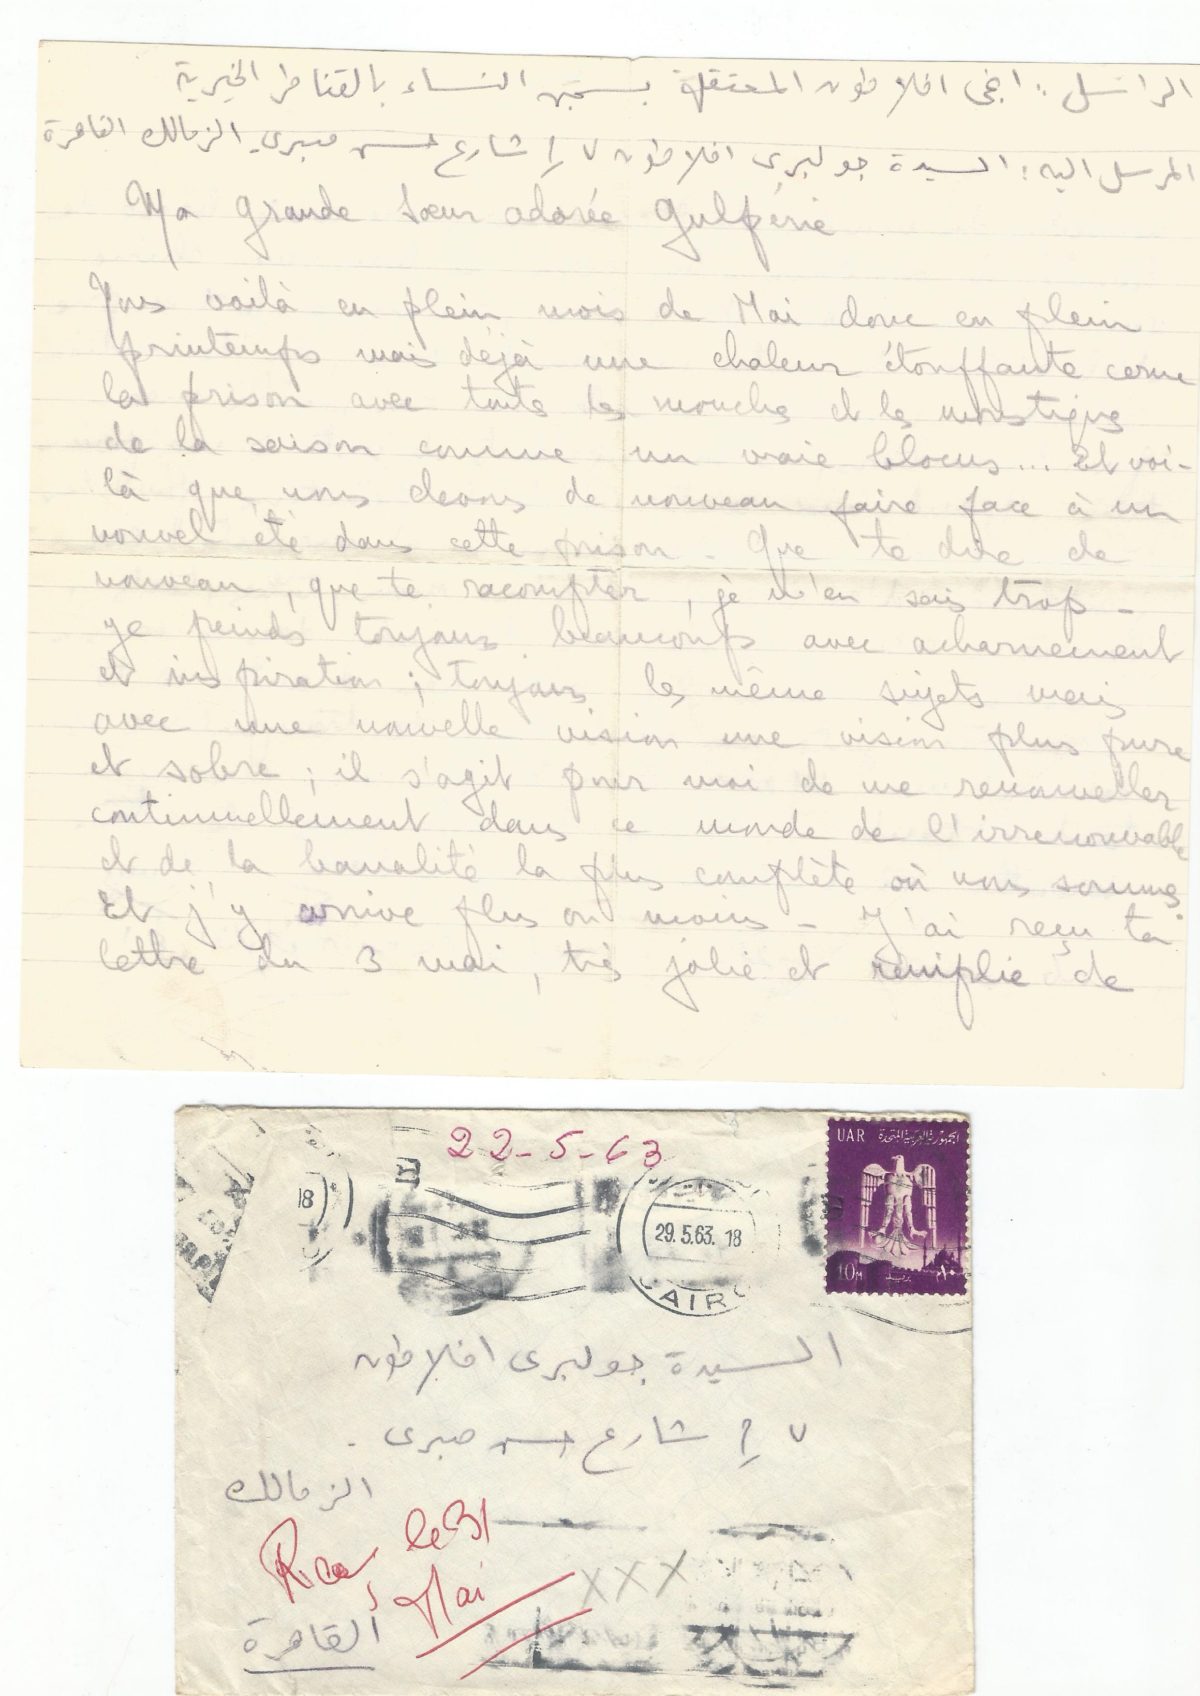 الراسل : انجى افلاطون المعتقلة بسجن النساء بالقناطر الخيرية
المرسل اليه : السيدة جولبرى افلاطون ٧ شارع حسن صبرى - الزمالك القاهرة
Ma grande sœur adorée Gulpérie
Nous voilà en plein mois de Mai donc en plein
printemps mais déjà une chaleur étouffante cerne
la prison avec toute les mouches et les moustiques
de la saison comme un vraie blocus... Et voi-
là que nous devons de nouveau faire face à un
nouvel été dans cette prison - Que te dire de
nouveau, que te racompter, je n'en sais trop -
Je peinds toujours beaucoups avec acharnement
et inspiration ; toujours les même sujets mais
avec une nouvelle vision une vision plus pure
et sobre ; il s'agit pour moi de me renouveller
continuellement dans ce monde de l'irrenouvable
et de la banalité la plus complète où nous sommes.
Et j'y arrive plus ou moins - J'ai reçu ta
lettre du 3 mai, très jolie et remplie de
22-5-63
UAR الجمهورية العربية المتحدة
18
29.5.63. 18
CAIRO
10M ١٠
بريد
السيدة جولبرى افلاطون
٧ شارع حسن صبرى -
الزمالك
Reçu le 31
Mai
XXX
القاهرة